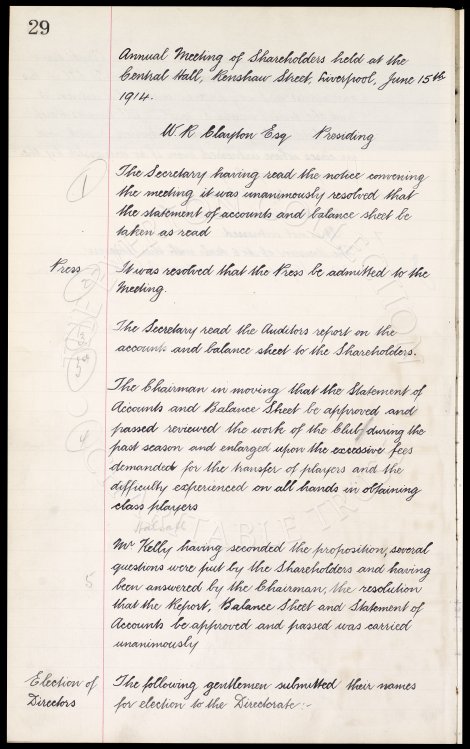 29
Annual Meeting of Shareholders held at the
Central Hall, Renshaw Street, Liverpool, June 15th
1914.
W R Clayton Esq Presiding
1
The Secretary having read the notice convening
the meeting it was unanimously resolved that
the statement of accounts and balance sheet be
taken as read
Press It was resolved that the Press be admitted to the
Meeting.
The Secretary read the Auditors report on the
accounts and balance sheet to the Shareholders.
The Chairman in moving that the Statement of
Accounts and Balance Sheet be approved and
passed reviewed the work of the Club during the
past season and enlarged upon the excessive fees
demanded for the transfer of players and the
difficulty experienced on all hands in obtaining
class players
Mr Kelly having seconded the proposition, several
questions were put by the Shareholders and having
5
been answered by the Chairman, the resolution
that the Report, Balance Sheet and Statement of
Accounts be approved and passed was carried
unanimously
Election of The following gentlemen submitted their names
Directors for election to the Directorate:-